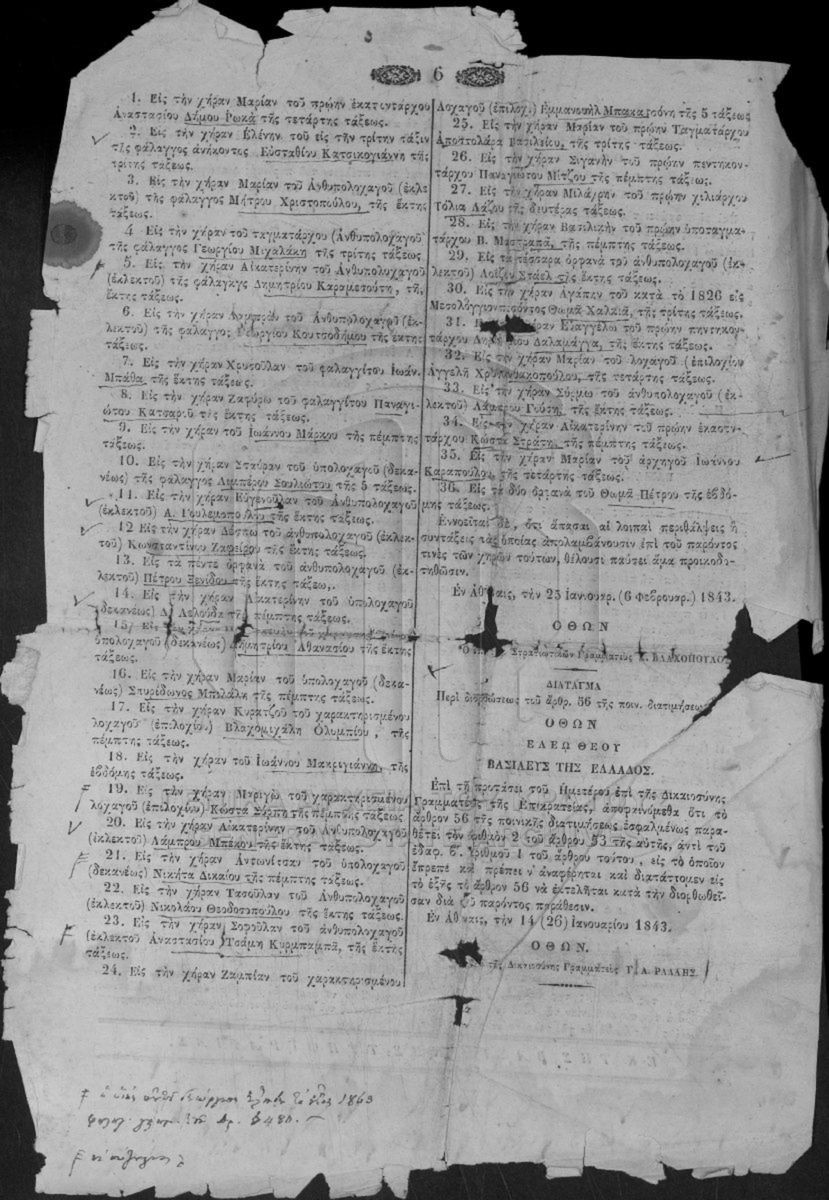 6
1. Εἰς τὴν χήραν Μαρίαν τοῦ πρώην ἑκατοντάρχου
Ἀναστασίου Δήμου Ρωκᾶ τῆς τετάρτης τάξεως.
2. Εἰς τὴν χήραν Ἑλένην τοῦ εἰς τὴν τρίτην τάξιν
τῆς φάλαγγος ἀνήκοντος Εὐσταθίου Κατσικογιάννη τῆς
τρίτης τάξεως.
3. Εἰς τὴν χήραν Μαρίαν τοῦ Ἀνθυπολοχαγοῦ (ἐκλε-
κτοῦ) τῆς φάλαγγος Μήτρου Χριστοπούλου, τῆς ἕκτης
τάξεως.
4 Εἰς τὴν χήραν τοῦ ταγματάρχου (Ἀνθυπολοχαγοῦ
τῆς φάλαγγος Γεωργίου Μιχαλάκη τῆς τρίτης τάξεως
5. Εἰς τὴν χήραν Αἰκατερίνην τοῦ Ἀνθυπολοχαγοῦ
(ἐκλεκτοῦ) τῆς φάλαγγος Δημητρίου Καραμεσούτη, τῆς
ἕκτης τάξεως.
6. Εἰς τὴν χήραν Λαμπρὰν τοῦ Ἀνθυπολοχαγοῦ (ἐκ-
λεκτοῦ) τῆς φάλαγγος Γεωργίου Κουτσοδήμου τῆς ἕκτης
τάξεως.
7. Εἰς τὴν χήραν Χρυσούλαν τοῦ φαλαγγίτου Ἰωάν.
Μπάθα τῆς ἕκτης τάξεως.
8. Εἰς τὴν χήραν Ζαφύρω τοῦ φαλαγγίτου Παναγι-
ώτου Κατσαροῦ τῆς ἕκτης τάξεως.
9. Εἰς τὴν χήραν τοῦ Ἰωάννου Μάρκου τῆς πέμπτης
τάξεως.
10. Εἰς τὴν χήραν Σταύραν τοῦ ὑπολοχαγοῦ (δεκα-
νέως) τῆς φάλαγγος Λιμπέρου Σουλιώτου τῆς 5 τάξεως.
11. Εἰς τὴν χήραν Εὐγενοῦλαν τοῦ Ἀνθυπολοχαγοῦ
(ἐκλεκτοῦ) Α. Γουλεμοπούλου τῆς ἕκτης τάξεως.
12 Εἰς τὴν χήραν Δέσπω τοῦ ἀνθυπολοχαγοῦ (ἐκλεκ-
τοῦ) Κωνσταντίνου Ζαφείρου τῆς ἕκτης τάξεως.
13. Εἰς τὰ πέντε ὀρφανὰ τοῦ ἀνθυπολοχαγοῦ (ἐκ-
λεκτοῦ) Πέτρου Ξενίδου τῆς ἕκτης τάξεω,.
14. Εἰς τὴν χήραν Αἰκατερίνην τοῦ ὑπολοχαγοῦ
(δεκανέως) Δ. Λελούδα τῆς πέμπτης τάξεως.
15. Εἰς τὴν χήραν
ὑπολοχαγοῦ (δεκανέως) Δημητρίου Ἀθανασίου τῆς ἕκτης
τάξεως.
16. Εἰς τὴν χήραν Μαρίαν τοῦ ὑπολοχαγοῦ (δεκα-
νέως) Σπυρίδωνος Μπιλάλη τῆς πέμπτης τάξεως.
17. Εἰς τὴν χήραν Κυρατζοῦ τοῦ χαρακτηρισμένου
λοχαγοῦ (ἐπιλοχίου) Βλαχομιχάλη Ὀλυμπίου, τῆς
πέμπτης τάξεως.
18. Εἰς τὴν χήραν τοῦ Ἰωάννου Μακρυγιάννη, τῆς
ἑβδόμης τάξεως.
19. Εἰς τὴν χήραν Μαριγὼ τοῦ χαρακτηρισμένου
λοχαγοῦ (ἐπιλοχίου) Κώστα Σύρπη τῆς πέμπτης τάξεως.
20. Εἰς τὴν χήραν Αἰκατερίνην τοῦ Ἀνθυπολοχαγοῦ
(ἐκλεκτοῦ) Λάμπρου Μπέκου τῆς ἕκτης τάξεως.
21. Εἰς τὴν χήραν Ἀντωνίτσαν τοῦ ὑπολοχαγοῦ
(δεκανέως) Νικήτα Δικαίου τῆς πέμπτης τάξεως.
22. Εἰς τὴν χήραν Τασούλαν τοῦ Ἀνθυπολοχαγοῦ
(ἐκλεκτοῦ) Νικολάου Θεοδοσοπούλου τῆς ἕκτης τάξεως.
23. Εἰς τὴν χήραν Σοφούλαν τοῦ ἀνθυπολοχαγοῦ
(ἐκλεκτοῦ Ἀναστασίου Τσάμη Κυρμπαμπᾶ, τῆς ἕκτης
τάξεως.
24. Εἰς τὴν χήραν Ζαμπίαν τοῦ χαρακτηρισμένου
Λοχαγοῦ (ἐπιλοχ.) Ἐμμανουὴλ Μπακατσόνη τῆς 5 τάξεως
25. Εἰς τὴν χήραν Μαρίαν τοῦ πρώην Ταγματάρχου
Ἀποστολάρα Βασιλείου, τῆς τρίτης τάξεως.
26. Εἰς τὴν χήραν Σιγανὴν τοῦ πρώην πεντηκον-
τάρχου Παναγιώτου Μίτζου τῆς πέμπτης τάξεως.
27. Εἰς τὴν χήραν Μιλάχρην τοῦ πρώην χιλιάρχου
Τόλια Λάζου τῆς δευτέρας τάξεως.
28. Εἰς τὴν χήραν Βασιλικὴν τοῦ πρώην ὑποταγμα-
τάρχου Β. Μαστραπᾶ, τῆς πέμπτης τάξεως.
29. Εἰς τὰ τέσσαρα ὀρφανὰ τοῦ ἀνθυπολοχαγοῦ (ἐκ-
λεκτοῦ) Λοΐζου Στάελ τῆς ἕκτης τάξεως.
30. Εἰς τὴν χήραν Ἀγάπην τοῦ κατὰ τὸ 1826 εἰς
Μεσολόγγιον πεσόντος Θωμᾶ Χαλκιᾶ, τῆς τρίτης τάξεως.
31. χήραν Εὐαγγέλω τοῦ πρώην πεντηκον-
τάρχου Δημητρίου Δαλαμάγγα, τῆς ἕκτης τάξεως.
32. Εἰς τὴν χήραν Μαρίαν τοῦ λοχαγοῦ (ἐπιλοχίου
Ἀγγελῆ τῆς τετάρτης τάξεως.
33. Εἰς τὴν χήραν Σύρμω τοῦ ἀνθυπολοχαγοῦ (ἐκ-
λεκτοῦ) Λάμπρου Γούση, τῆς ἕκτης τάξεως.
34. Εἰς τὴν χήραν Αἰκατερίνην τοῦ πρώην ἑκατον-
τάρχου Κώστα Στράτη, τῆς πέμπτης τάξεως.
35. Εἰς τὴν χήραν Μαρίαν τοῦ ἀρχηγοῦ Ἰωάννου
Καραπούλου, τῆς τετάρτης τάξεως.
36. Εἰς τὰ δύο ὀρφανὰ τοῦ Θωμᾶ Πέτρου τῆς ἑβδό-
μης τάξεως.
Ἐννοεῖται δὲ, ὅτι ἅπασαι αἱ λοιπαὶ περιθάλψεις ἢ
συντάξεις τὰς ὁποίας ἀπολαμβάνουσιν ἐπὶ τοῦ παρόντος
τινὲς τῶν χηρῶν τούτων, θέλουσι παύσει ἅμα προικοδο-
τηθῶσιν.
Ἐν Ἀθήναις, τὴν 25 Ἰανουαρ. (6 Φεβρουαρ.) 1843.
ΟΘΩΝ
Στρατιωτικῶν Γραμματεὺς ΒΛΑΧΟΠΟΥΛΟΣ
ΔΙΑΤΑΓΜΑ
Περὶ διορθώσεως τοῦ ἄρθρ. 56 τῆς ποιν. διατιμήσεως
ΟΘΩΝ
ΕΛΕΩ ΘΕΟΥ
ΒΑΣΙΛΕΥΣ ΤΗΣ ΕΛΛΑΔΟΣ.
Ἐπὶ τῇ προτάσει τοῦ Ἡμετέρου ἐπὶ τῆς Δικαιοσύνης
Γραμματέως τῆς Ἐπικρατείας, ἀποφαινόμεθα ὅτι τὸ
ἄρθρον 56 τῆς ποινικῆς διατιμήσεως ἐσφαλμένως παρα-
θέτει τὸν ἀριθμὸν 2 τοῦ ἄρθρου 53 τῆς αὐτῆς, ἀντὶ τοῦ
ἐδαφ. β. ἀριθμοῦ 1 τοῦ ἄρθρου τούτου, εἰς τὸ ὁποῖον
ἔπρεπε καὶ πρέπει ν' ἀναφέρηται καὶ διατάττομεν εἰς
τὸ ἑξῆς τὸ ἄρθρον 56 νὰ ἐκτελῆται κατὰ τὴν διορθωθεῖ-
σαν διὰ τοῦ παρόντος παράθεσιν.
Ἐν Ἀθήναις, τὴν 14 (26) Ἰανουαρίου 1843.
ΟΘΩΝ.
τῆς Δικαιοσύνης Γραμματεὺς Γ. Α. ΡΑΛΛΗΣ.
1863